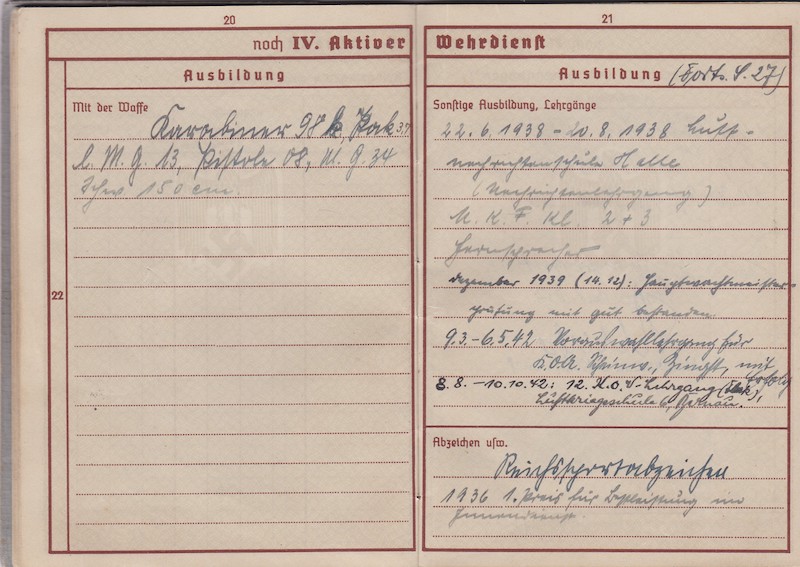 20
noch IV. Aktiver
Ausbildung
Mit der Waffe
Karabiner 98 k, Pak 37
l. M. G. 13, Pistole 08, M. G. 34
Schw. 150 cm.
22
21
Wehrdienst
Ausbildung (Forts. S. 27)
Sonstige Ausbildung, Lehrgänge
22. 6. 1938 – 20. 8. 1938 Luft-
nachrichtenschule Halle
M. K. F. Kl. 2 + 3
Fernsprecher
Dezember 1939 (14.12): Hauptwachtmeister-
prüfung mit gut bestanden
9.3.–6.5.42 Vorauswahllehrgang für
K.O.A. Zingst, mit Erfolg
8. 8. – 10.10.42: 12. K.O.A-Lehrgang (Flak),
Luftkriegsschule 6, Bernau.
Abzeichen usw.
Reichssportabzeichen
1936 1. Preis für Bestleistung im
Innendienst.